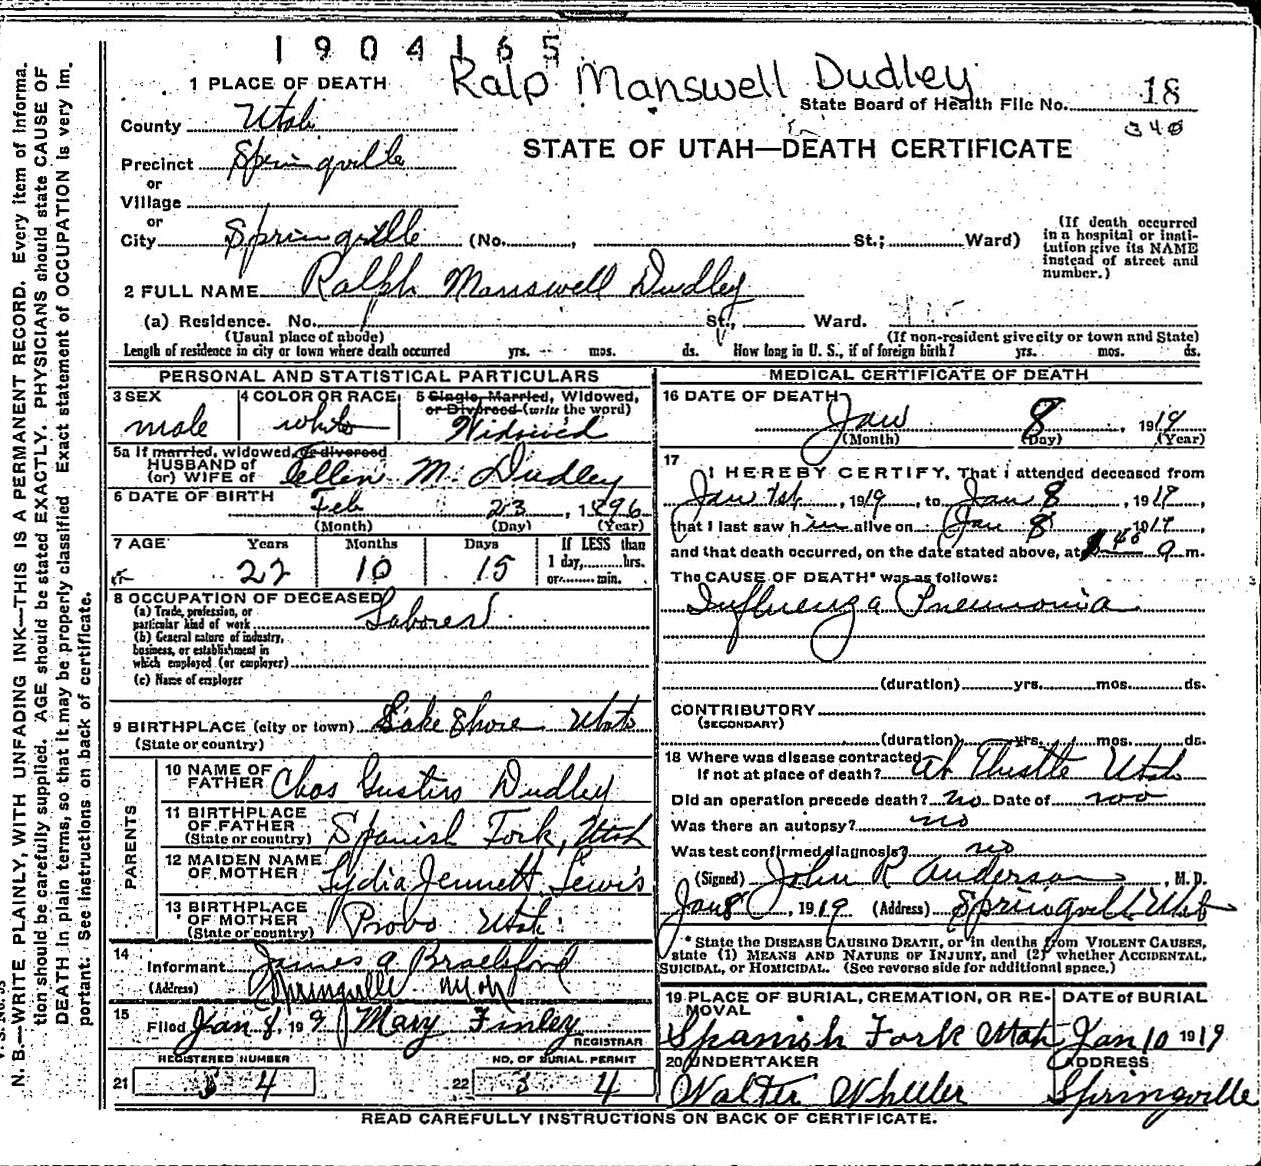 1904165
Ralp Manswell Dudley
1 PLACE OF DEATH
State Board of Health File No. 18
340
County Utah
STATE OF UTAH—DEATH CERTIFICATE
Precinct Springville
or
Village
or
City Springville (No. , St.; Ward)
(If death occurred in a hospital or insti-
tution give its NAME instead of street and number.)
2 FULL NAME Ralph Manswell Dudley
(a) Residence. No. St., Ward.
(Usual place of abode) (If non-resident give city or town and State)
Length of residence in city or town where death occurred yrs. mos. ds. How long in U. S., if of foreign birth? yrs. mos. ds.
PERSONAL AND STATISTICAL PARTICULARS
3 SEX male
4 COLOR OR RACE white
5 Single, Married, Widowed, or Divorced (write the word) Widowed
5a If married, widowed, or divorced
HUSBAND of
(or) WIFE of Ellen M. Dudley
6 DATE OF BIRTH Feb 23, 1896
(Month) (Day) (Year)
7 AGE Years Months Days If LESS than
22 10 15 1 day, hrs.
or min.
8 OCCUPATION OF DECEASED
(a) Trade, profession, or
particular kind of work Laborer
(b) General nature of industry,
business, or establishment in
which employed (or employer)
(c) Name of employer
9 BIRTHPLACE (city or town) Lake Shore Utah
(State or country)
PARENTS
10 NAME OF FATHER Chas Gustivs Dudley
11 BIRTHPLACE OF FATHER (State or country) Spanish Fork, Utah
12 MAIDEN NAME OF MOTHER Lydia Jennett Lewis
13 BIRTHPLACE OF MOTHER (State or country) Provo Utah
14 Informant James A Brailsford
(Address) Springville Utah
15 Filed Jan 8, 19 9 Mary Finley
REGISTRAR
REGISTERED NUMBER NO. OF BURIAL PERMIT
21 4 22 4
MEDICAL CERTIFICATE OF DEATH
16 DATE OF DEATH
Jan 8, 1919
(Month) (Day) (Year)
17 I HEREBY CERTIFY, That i attended deceased from
Jan 1st, 1919, to Jan 8, 1919,
that I last saw him alive on Jan 8 1919,
and that death occurred, on the date stated above, at 40 a m.
The CAUSE OF DEATH* was as follows:
Influenza Pneumonia
(duration) yrs. mos. ds.
CONTRIBUTORY
(SECONDARY)
(duration) yrs. mos. ds.
18 Where was disease contracted
If not at place of death? at Thistle Utah
Did an operation precede death? no Date of
Was there an autopsy? no
Was test confirmed diagnosis? no
(Signed) John R Anderson, M.D.
Jan 8, 1919 (Address) Springville Utah
* State the DISEASE CAUSING DEATH, or in deaths from VIOLENT CAUSES,
state (1) MEANS AND NATURE OF INJURY, and (2) whether ACCIDENTAL,
SUICIDAL, or HOMICIDAL. (See reverse side for additional space.)
19 PLACE OF BURIAL, CREMATION, OR RE-
MOVAL
Spanish Fork Utah
DATE of BURIAL
Jan 10 1919
20 UNDERTAKER
Walter Wheeler
ADDRESS
Springville
READ CAREFULLY INSTRUCTIONS ON BACK OF CERTIFICATE.
N. B.—WRITE PLAINLY, WITH UNFADING INK—THIS IS A PERMANENT RECORD. Every item of informa-
tion should be carefully supplied. AGE should be stated EXACTLY. PHYSICIANS should state CAUSE OF
DEATH in plain terms, so that it may be properly classified. Exact statement of OCCUPATION is very im-
portant. See instructions on back of certificate.